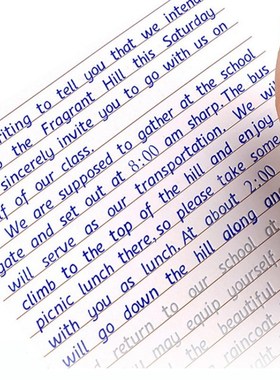 iting to tell you that we intend
the Fragrant Hill this Saturday
sincerely invite you to go with us on
f of our class.
We are supposed to gather at the school
gate and set out at 8:00 am sharp. The bus
will serve as our transportation. We wi
climb to the top of the hill and enjoy
picnic lunch there, so please take some
with you as lunch. At about 2:00
will go down the hill along an
return to our school at
may equip yourself
the beautiful
raincoat